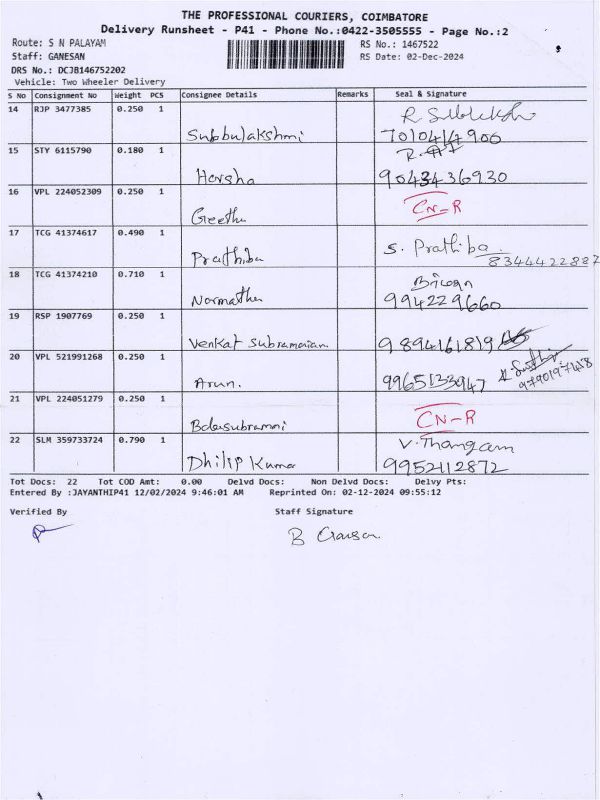 THE PROFESSIONAL COURIERS, COIMBATORE
Delivery Runsheet - P41 - Phone No.:0422-3505555 - Page No.:2
Route: S N PALAYAM
RS No.: 1467522
Staff: GANESAN
RS Date: 02-Dec-2024
DRS No.: DCJB146752202
Vehicle: Two Wheeler Delivery
S No Consignment No Weight PCS Consignee Details Remarks Seal & Signature
14 RJP 3477385 0.250 1
Subbulakshmi
15 STY 6115790 0.180 1
Harsha 9043436930
16 VPL 224052309 0.250 1
Geetha CN-R
17 TCG 41374617 0.490 1
Prathiba S. Prathiba
8344422887
18 TCG 41374210 0.710 1
994229660
19 RSP 1907769 0.250 1
Venkat Subramanian 9894161819
20 VPL 521991268 0.250 1
Arun. 9965133947
21 VPL 224051279 0.250 1
CN-R
22 SLM 359733724 0.790 1 V. Thangam
Dhilip Kumar 9952112872
Tot Docs: 22 Tot COD Amt: 0.00 Delvd Docs: Non Delvd Docs: Delvy Pts:
Entered By :JAYANTHIP41 12/02/2024 9:46:01 AM Reprinted On: 02-12-2024 09:55:12
Verified By Staff Signature